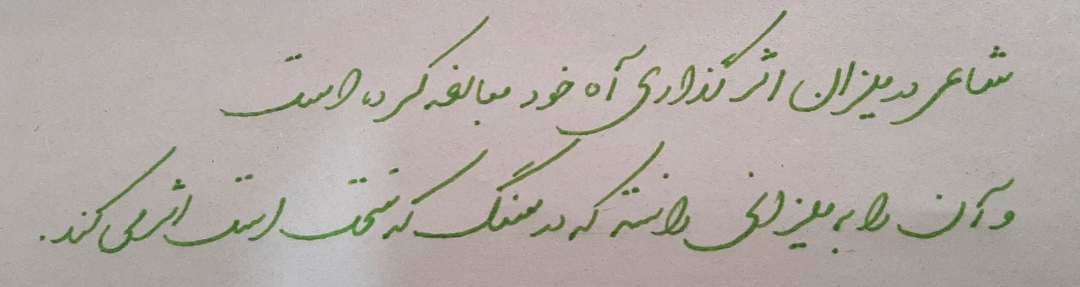 شاعر در میزان اثر گذاری آه خود مبالغه کرده است
و آن را به میزانی دانسته که در سنگ که سخت است اثر می کند.